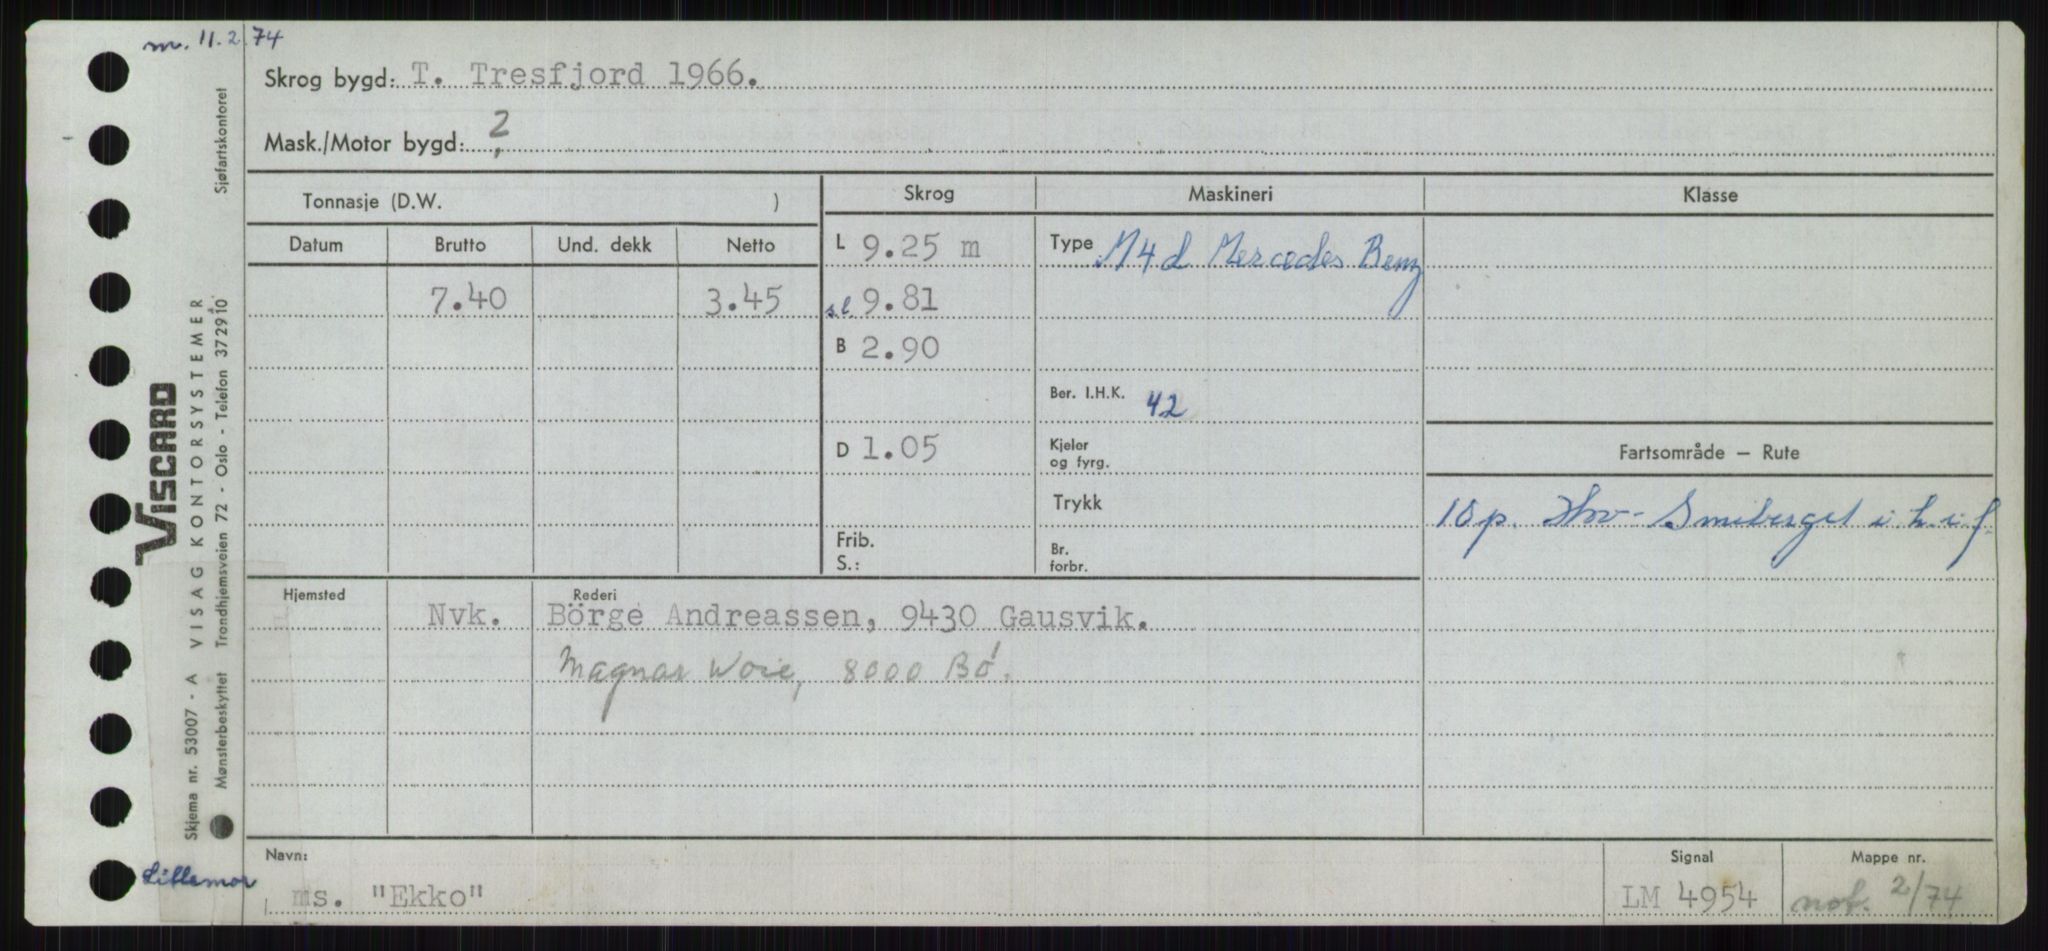 m. 11.2.74
Skrog bygd: T. Tresfjord 1966.
Mask./Motor bygd: ?
Tonnasje (D.W. )
Skrog
Maskineri
Klasse
Datum Brutto Und. dekk Netto
L 9.25 m
Type M4d Mercedes Benz
7.40 3.45
s.l. 9.81
B 2.90
Ber. I.H.K. 42
D 1.05
Kjeler
og fyrg.
Fartsområde — Rute
Trykk
10 p. i h.i.f.
Frib.
S.:
Br.
forbr.
Hjemsted
Rederi
Nvk. Börge Andreassen, 9430 Gausvik.
Magnar Woie, 8000 Bö.
Navn:
ms. "Ekko"
Signal
LM 4954
Mappe nr.
not. 2/74
Lillemor
VISCARD
Skjema nr. 53007 - A VISAG KONTORSYSTEMER
Mønsterbeskyttet Trondhjemsveien 72 - Oslo - Telefon 372910 Sjøfartskontoret